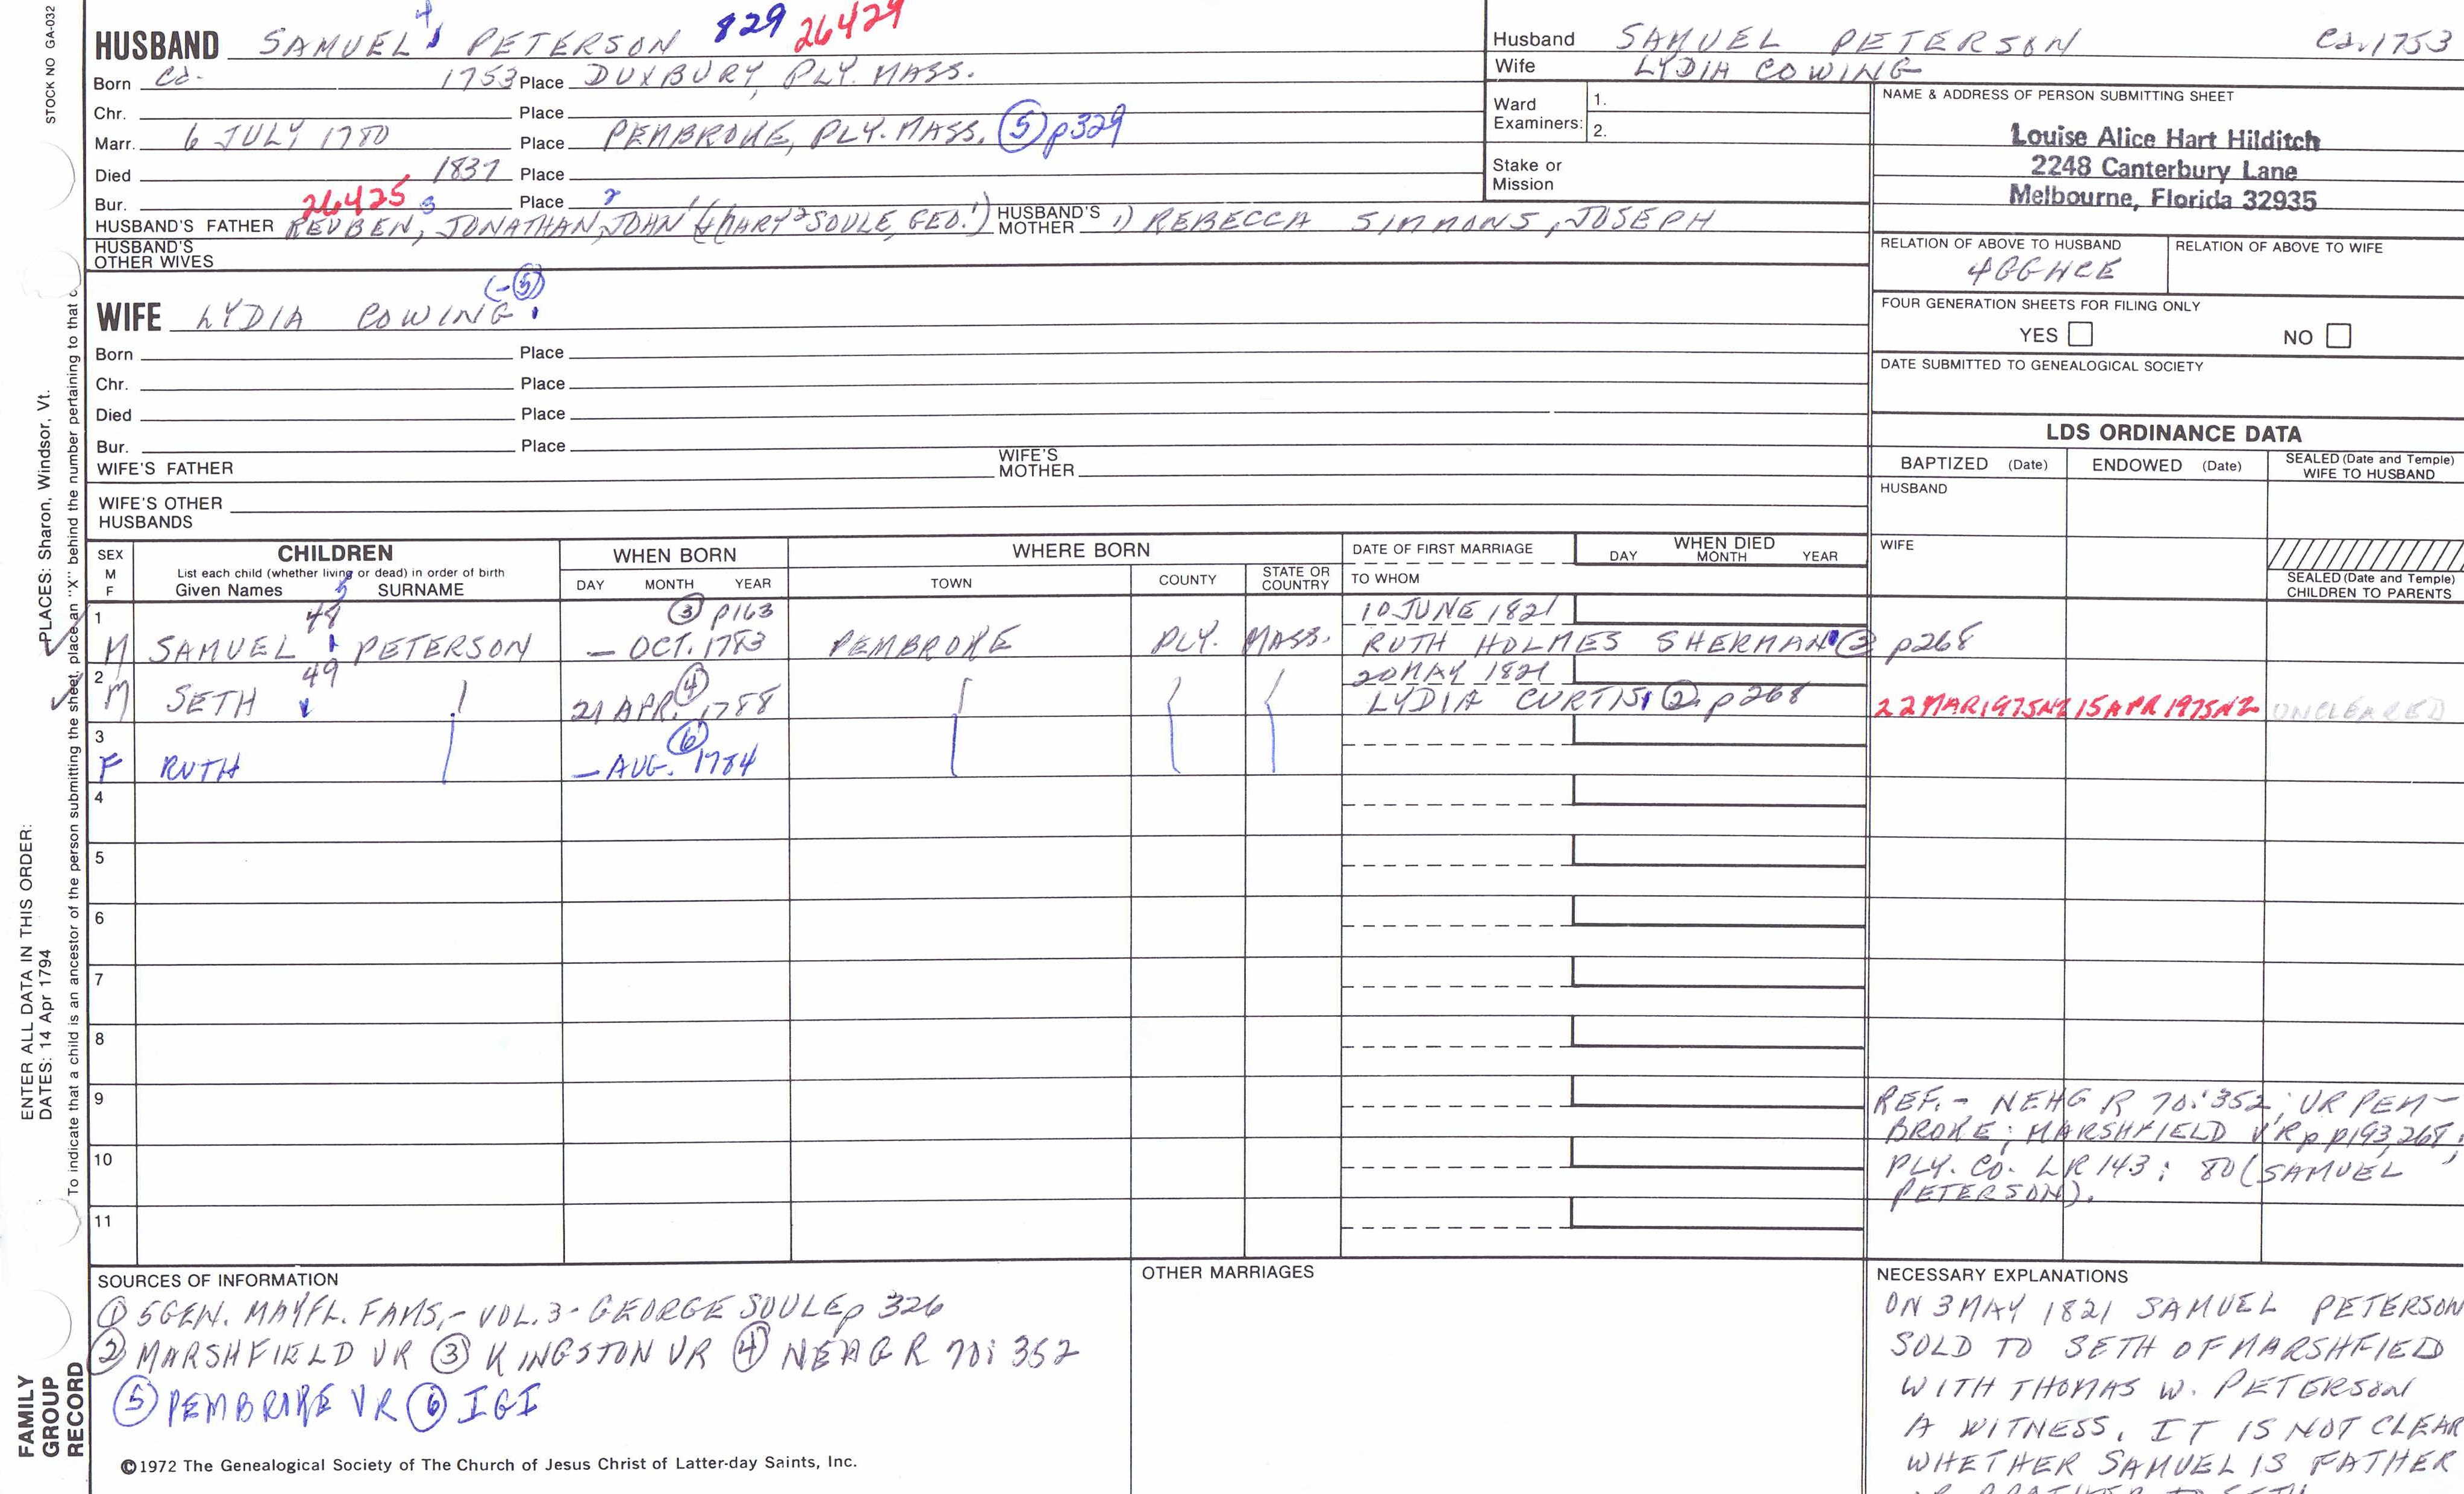 STOCK NO GA-032
HUSBAND SAMUEL 4 PETERSON 829 26429
Born ca. 1753 Place DUXBURY, PLY. MASS.
Chr. Place
Marr. 6 JULY 1780 Place PEMBROKE, PLY. MASS. (5) p329
Died 1837 Place
Bur. Place
26425
HUSBAND'S FATHER REUBEN, 3 JONATHAN, 2 JOHN 1 (MARY 2 SOULE, GEO. 1) HUSBAND'S MOTHER 1) REBECCA SIMMONS, JOSEPH
HUSBAND'S OTHER WIVES
WIFE LYDIA COWING (-5)
Born Place
Chr. Place
Died Place
Bur. Place
WIFE'S FATHER WIFE'S MOTHER
WIFE'S OTHER HUSBANDS
Husband SAMUEL PETERSON ca. 1753
Wife LYDIA COWING
Ward Examiners: 1.
2.
Stake or Mission
NAME & ADDRESS OF PERSON SUBMITTING SHEET
Louise Alice Hart Hilditch
2248 Canterbury Lane
Melbourne, Florida 32935
RELATION OF ABOVE TO HUSBAND RELATION OF ABOVE TO WIFE
4GGHCE
FOUR GENERATION SHEETS FOR FILING ONLY
YES NO
DATE SUBMITTED TO GENEALOGICAL SOCIETY
LDS ORDINANCE DATA
BAPTIZED (Date) ENDOWED (Date) SEALED (Date and Temple) WIFE TO HUSBAND
HUSBAND
WIFE
SEALED (Date and Temple) CHILDREN TO PARENTS
SEX M F CHILDREN WHEN BORN WHERE BORN DATE OF FIRST MARRIAGE WHEN DIED
List each child (whether living or dead) in order of birth
Given Names SURNAME DAY MONTH YEAR TOWN COUNTY STATE OR COUNTRY TO WHOM DAY MONTH YEAR
1 48 5 (3) p163 10 JUNE 1821
M SAMUEL PETERSON – OCT. 1783 PEMBROKE PLY. MASS. RUTH HOLMES SHERMAN (2) p268
2 49 (4) 20 MAY 1821
M SETH 21 APR. 1788 LYDIA CURTIS (2) p268 22MAR1975NZ 15APR1975NZ UNCLEARED
3 (6)
F RUTH – AUG. 1784
4
5
6
7
8
9
10
11
REF.- NEHG R 70:352; VR PEM-
BROKE; MARSHFIELD VR pp193,268;
PLY. CO. LR 143: 80 (SAMUEL
PETERSON).
SOURCES OF INFORMATION
(1) 5GEN. MAYFL. FAMS,- VOL.3- GEORGE SOULE p 326
(2) MARSHFIELD VR (3) KINGSTON VR (4) NEHG R 70: 352
(5) PEMBROKE VR (6) IGI
OTHER MARRIAGES
NECESSARY EXPLANATIONS
ON 3 MAY 1821 SAMUEL PETERSON
SOLD TO SETH OF MARSHFIELD
WITH THOMAS W. PETERSON
A WITNESS. IT IS NOT CLEAR
WHETHER SAMUEL IS FATHER
©1972 The Genealogical Society of The Church of Jesus Christ of Latter-day Saints, Inc.
PLACES: Sharon, Windsor, Vt.
ENTER ALL DATA IN THIS ORDER:
DATES: 14 Apr 1794
To indicate that a child is an ancestor of the person submitting the sheet, place an "X" behind the number pertaining to that c
FAMILY
GROUP
RECORD